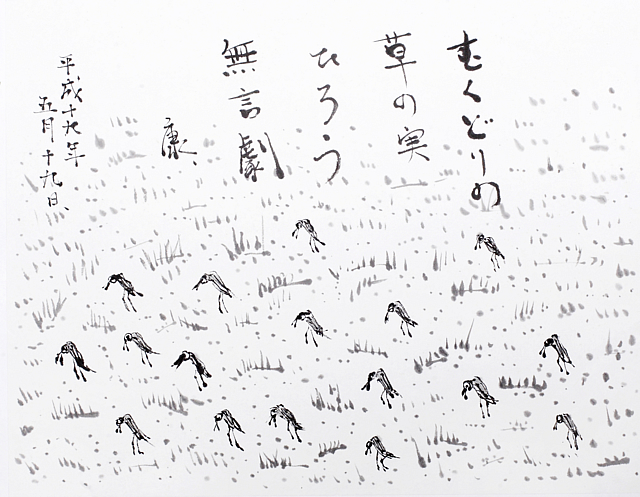 むくどりの
草の実
ひろう
無言劇
康
平成十九年
五月十九日